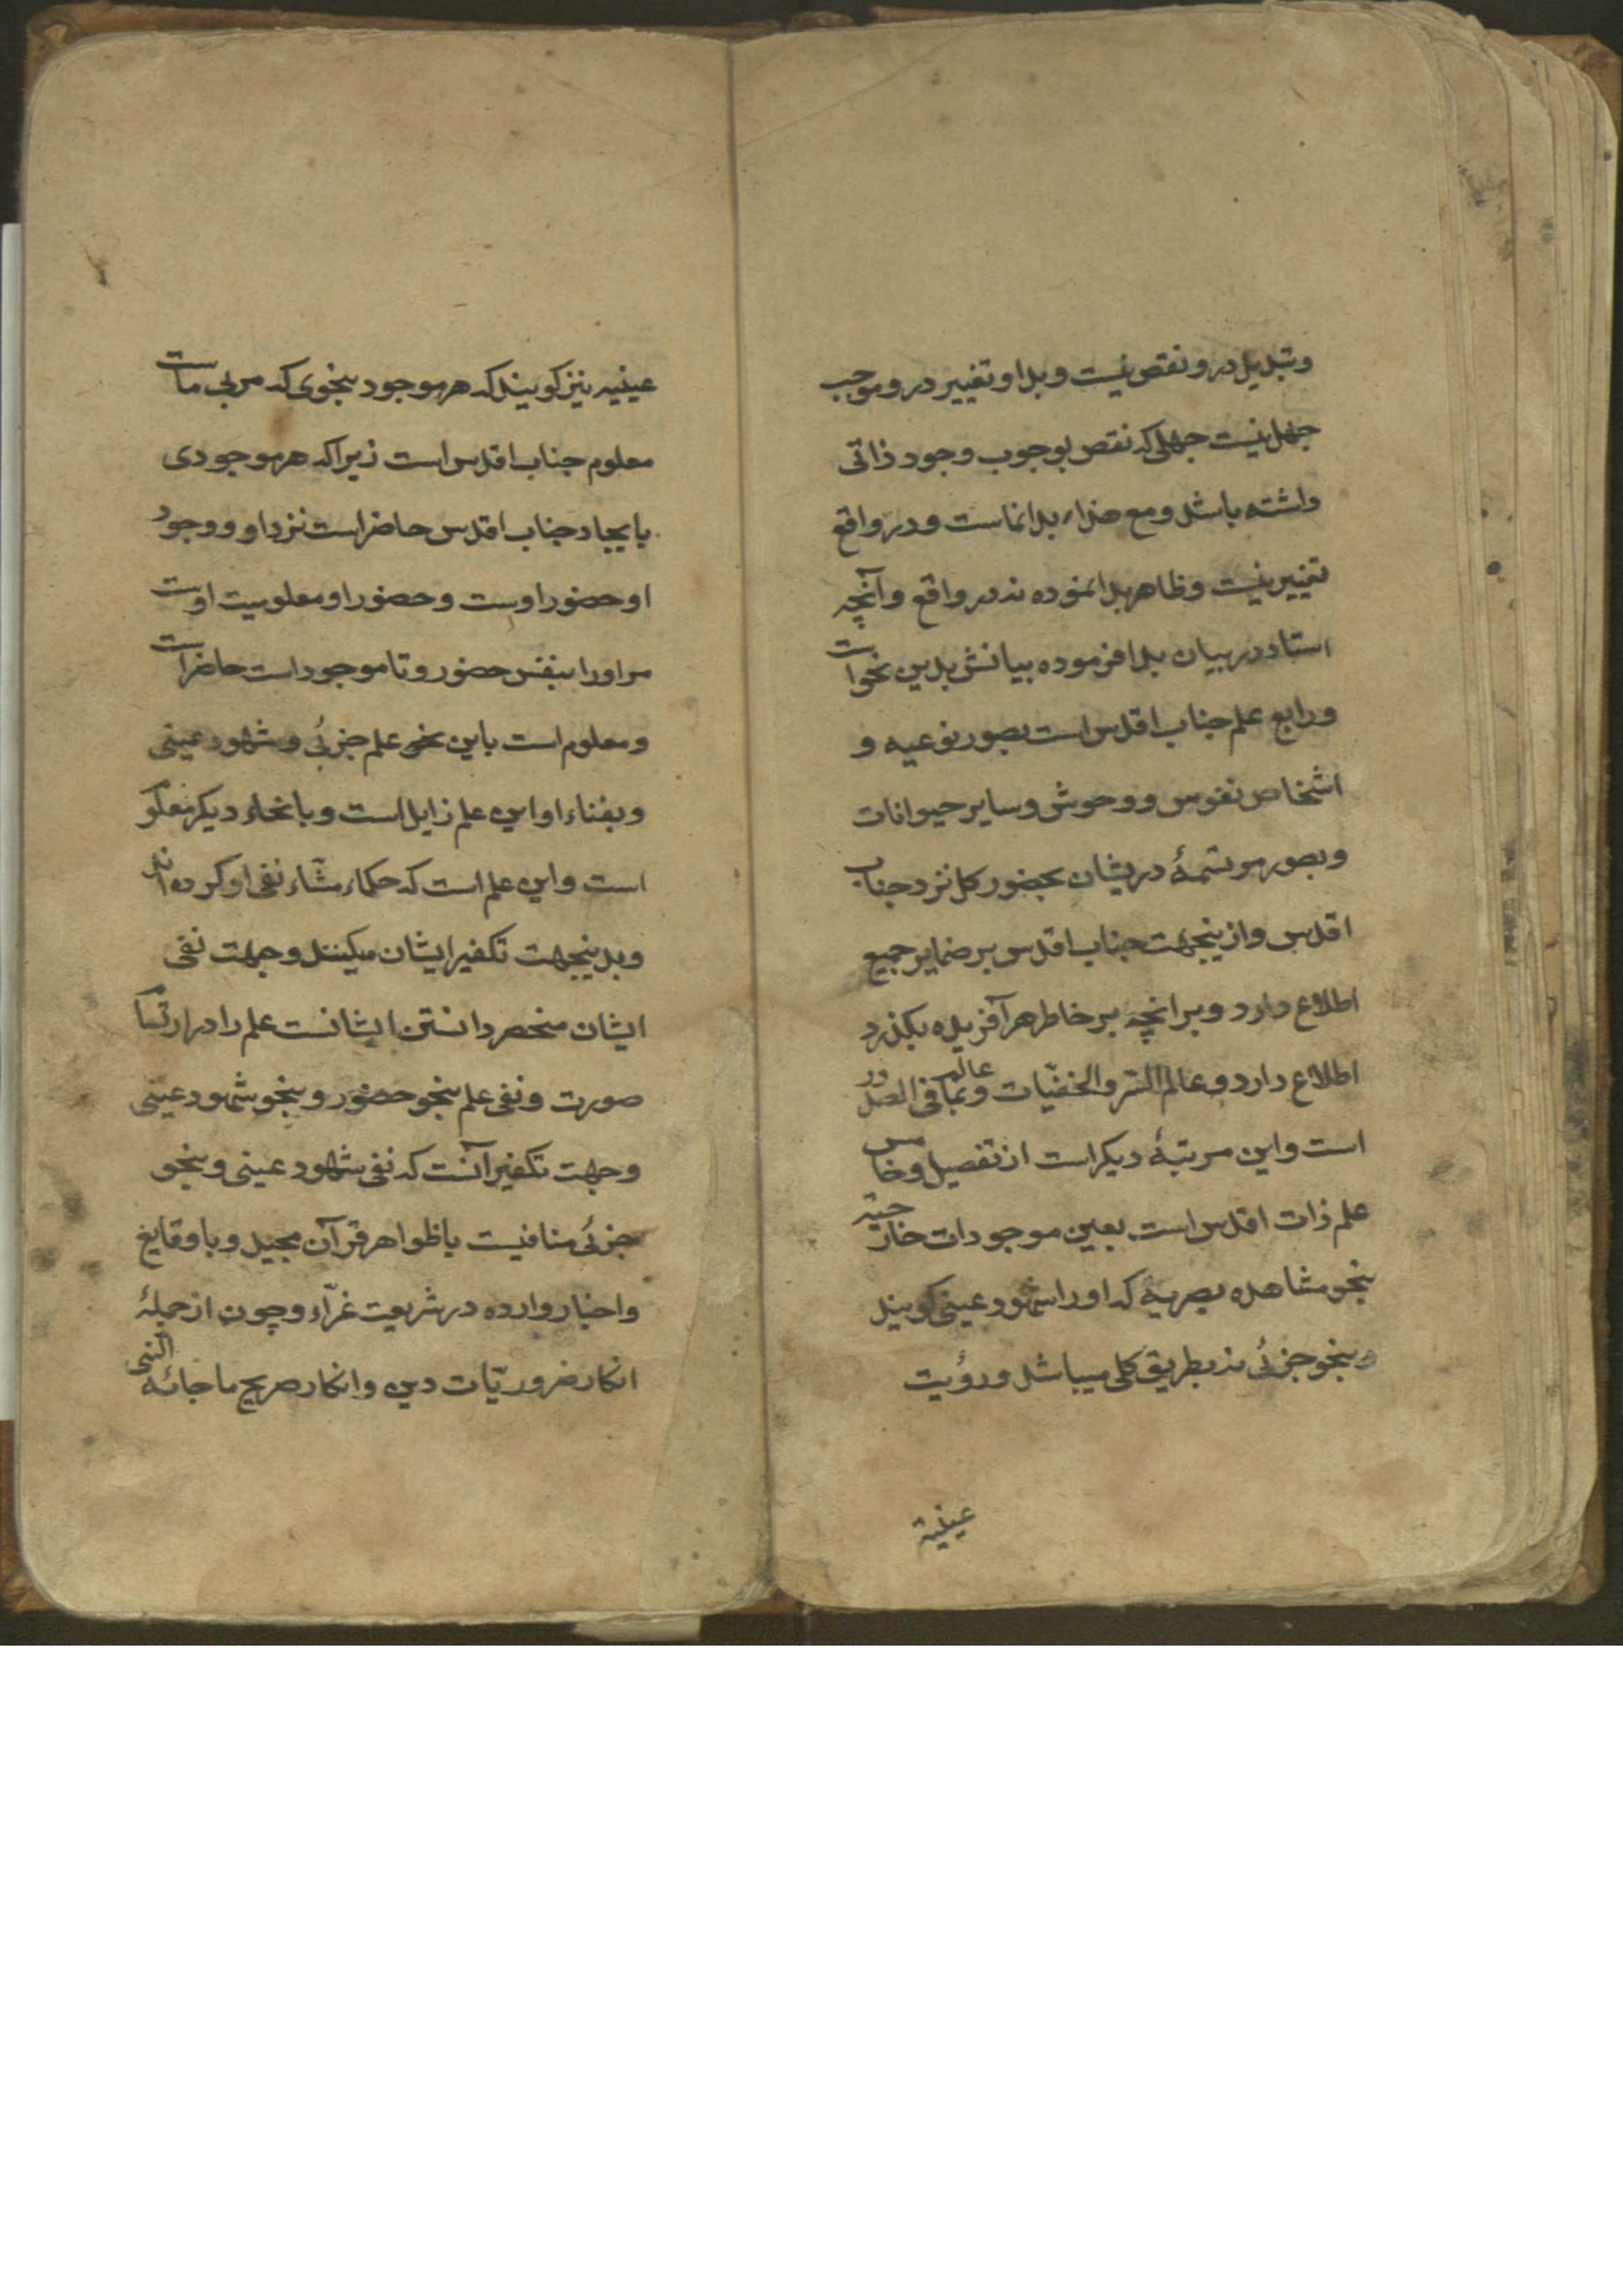 وتبدیل درو نقص نیست وبدا و تغییر درو موجب
جهل نیست جهلی که نقص بوجوب وجود ذاتی
داشته باشد ومع هذا، بدانماست ودر واقع
تغییر نیست وظاهر بدا نموده نه در واقع وآنچه
استاد در بیان بدا فرموده بیانش بدین نحو است
ورابع علم جناب اقدس است بصور نوعیه و
اشخاص نفوس ووحوش وسایر حیوانات
وبصور مرتسمهٔ دریشان بحضور کل نزد جناب
اقدس وازینجهت جناب اقدس بر ضمایر جمیع
اطلاع دارد وبرانچه بر خاطر هر آفریده بکذرد
اطلاع دارد وعالم السّر والخفیّات وعالم بما فی الصدور
است واین مرتبهٔ دیکر است از تفصیل وخامس
علم ذات اقدس است بعین موجودات خارجیّه
بنحو مشاهده بصریه که او را شهود عینی کویند
وبنحو جزئی نه بطریق کلی میباشد ورؤیت
عینیة
عینیه نیز کویند که هر موجود بنحوی که مربی ماست
معلوم جناب اقدس است زیرا که هر موجودی
بایجاد جناب اقدس حاضر است نزد او ووجود
او حضور اوست وحضور او معلومیت اوست
مر او را بنفس حضور وتا موجود است حاضر است
ومعلوم است باین نحو علم جزئی وشهود عینی
وبفناء او این علم زایل است وبانحاء دیکر معلوم
است واین علم است که حکماء مشّاء نفی او کرده اند
وبدینجهت تکفیر ایشان میکنند وجهت نفی
ایشان منحصر دانستن ایشانست علم را در ارتسام
صورت ونفی علم بنحو حضور وبنحو شهود عینی
وجهت تکفیر آنست که نفی شهود عینی وبنحو
جزئی منافیست باظواهر قرآن مجید وباوقایع
واخبار وارده در شریعت غرّاء وچون از جملهٔ
انکار ضروریّات دین وانکار صریح ما جائه النبی